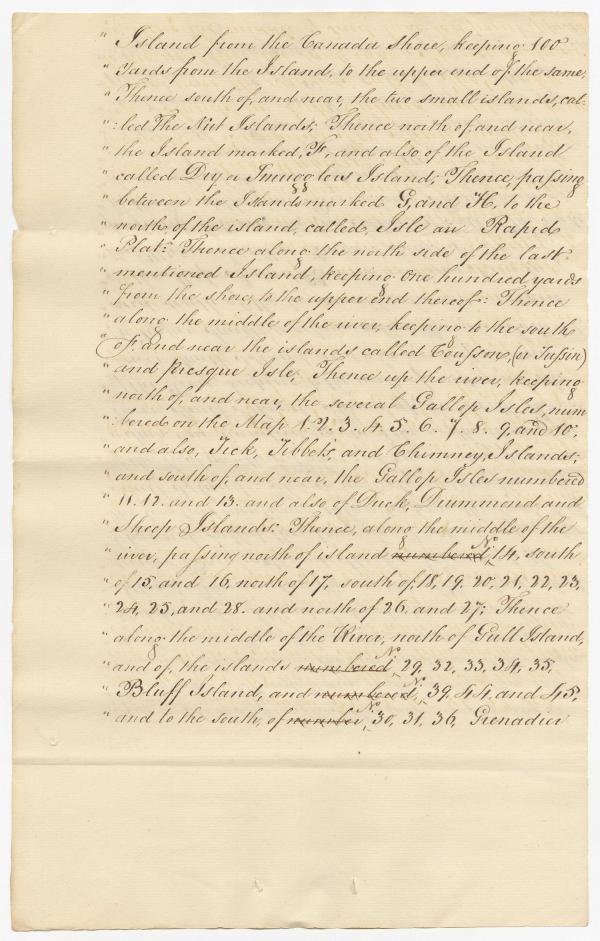 " Island from the Canada shore, keeping 100
" Yards from the Island, to the upper end of the same,
" Thence south of, and near, the two small islands, cal-
" :led The Nut Islands; Thence north of, and near,
" the Island marked, F, and also of the Island
" called Dry or Smugglers Island; Thence, passing
" between the Islands marked G, and H, to the
" north, of the island, called, Isle au Rapid
" Plat: Thence along the north side of the last
" mentioned Island, keeping one hundred yards
" from the shore, to the upper end thereof: Thence
" along the middle of the river, keeping to the south
" of, and near the islands called Cousson, (or Tussin)
" and Presque Isle; Thence up the river, keeping
" north of, and near, the several Gallop Isles, num
" :bered on the Map 1. 2. 3. 4. 5. 6. 7. 8. 9, and 10;
" and also, Tick, Tibbets, and Chimney, Islands;
" and south of, and near, the Gallop Isles numbered
" 11. 12. and 13. and also of Duck, Drummond and
" Sheep Islands: Thence, along the middle of the
" river, passing north of island numbered, No 14, south
" of 15, and 16, north of 17, south of, 18, 19, 20, 21, 22, 23,
" 24, 25, and 28. and north of 26, and 27; Thence
" along the middle of the River, north of Gull Island,
" and of, the islands numbered, No 29, 32, 33, 34, 35,
" Bluff Island, and numbered, No 39, 44, and 45,
" and to the south, of number, No 30, 31, 36, Grenadier